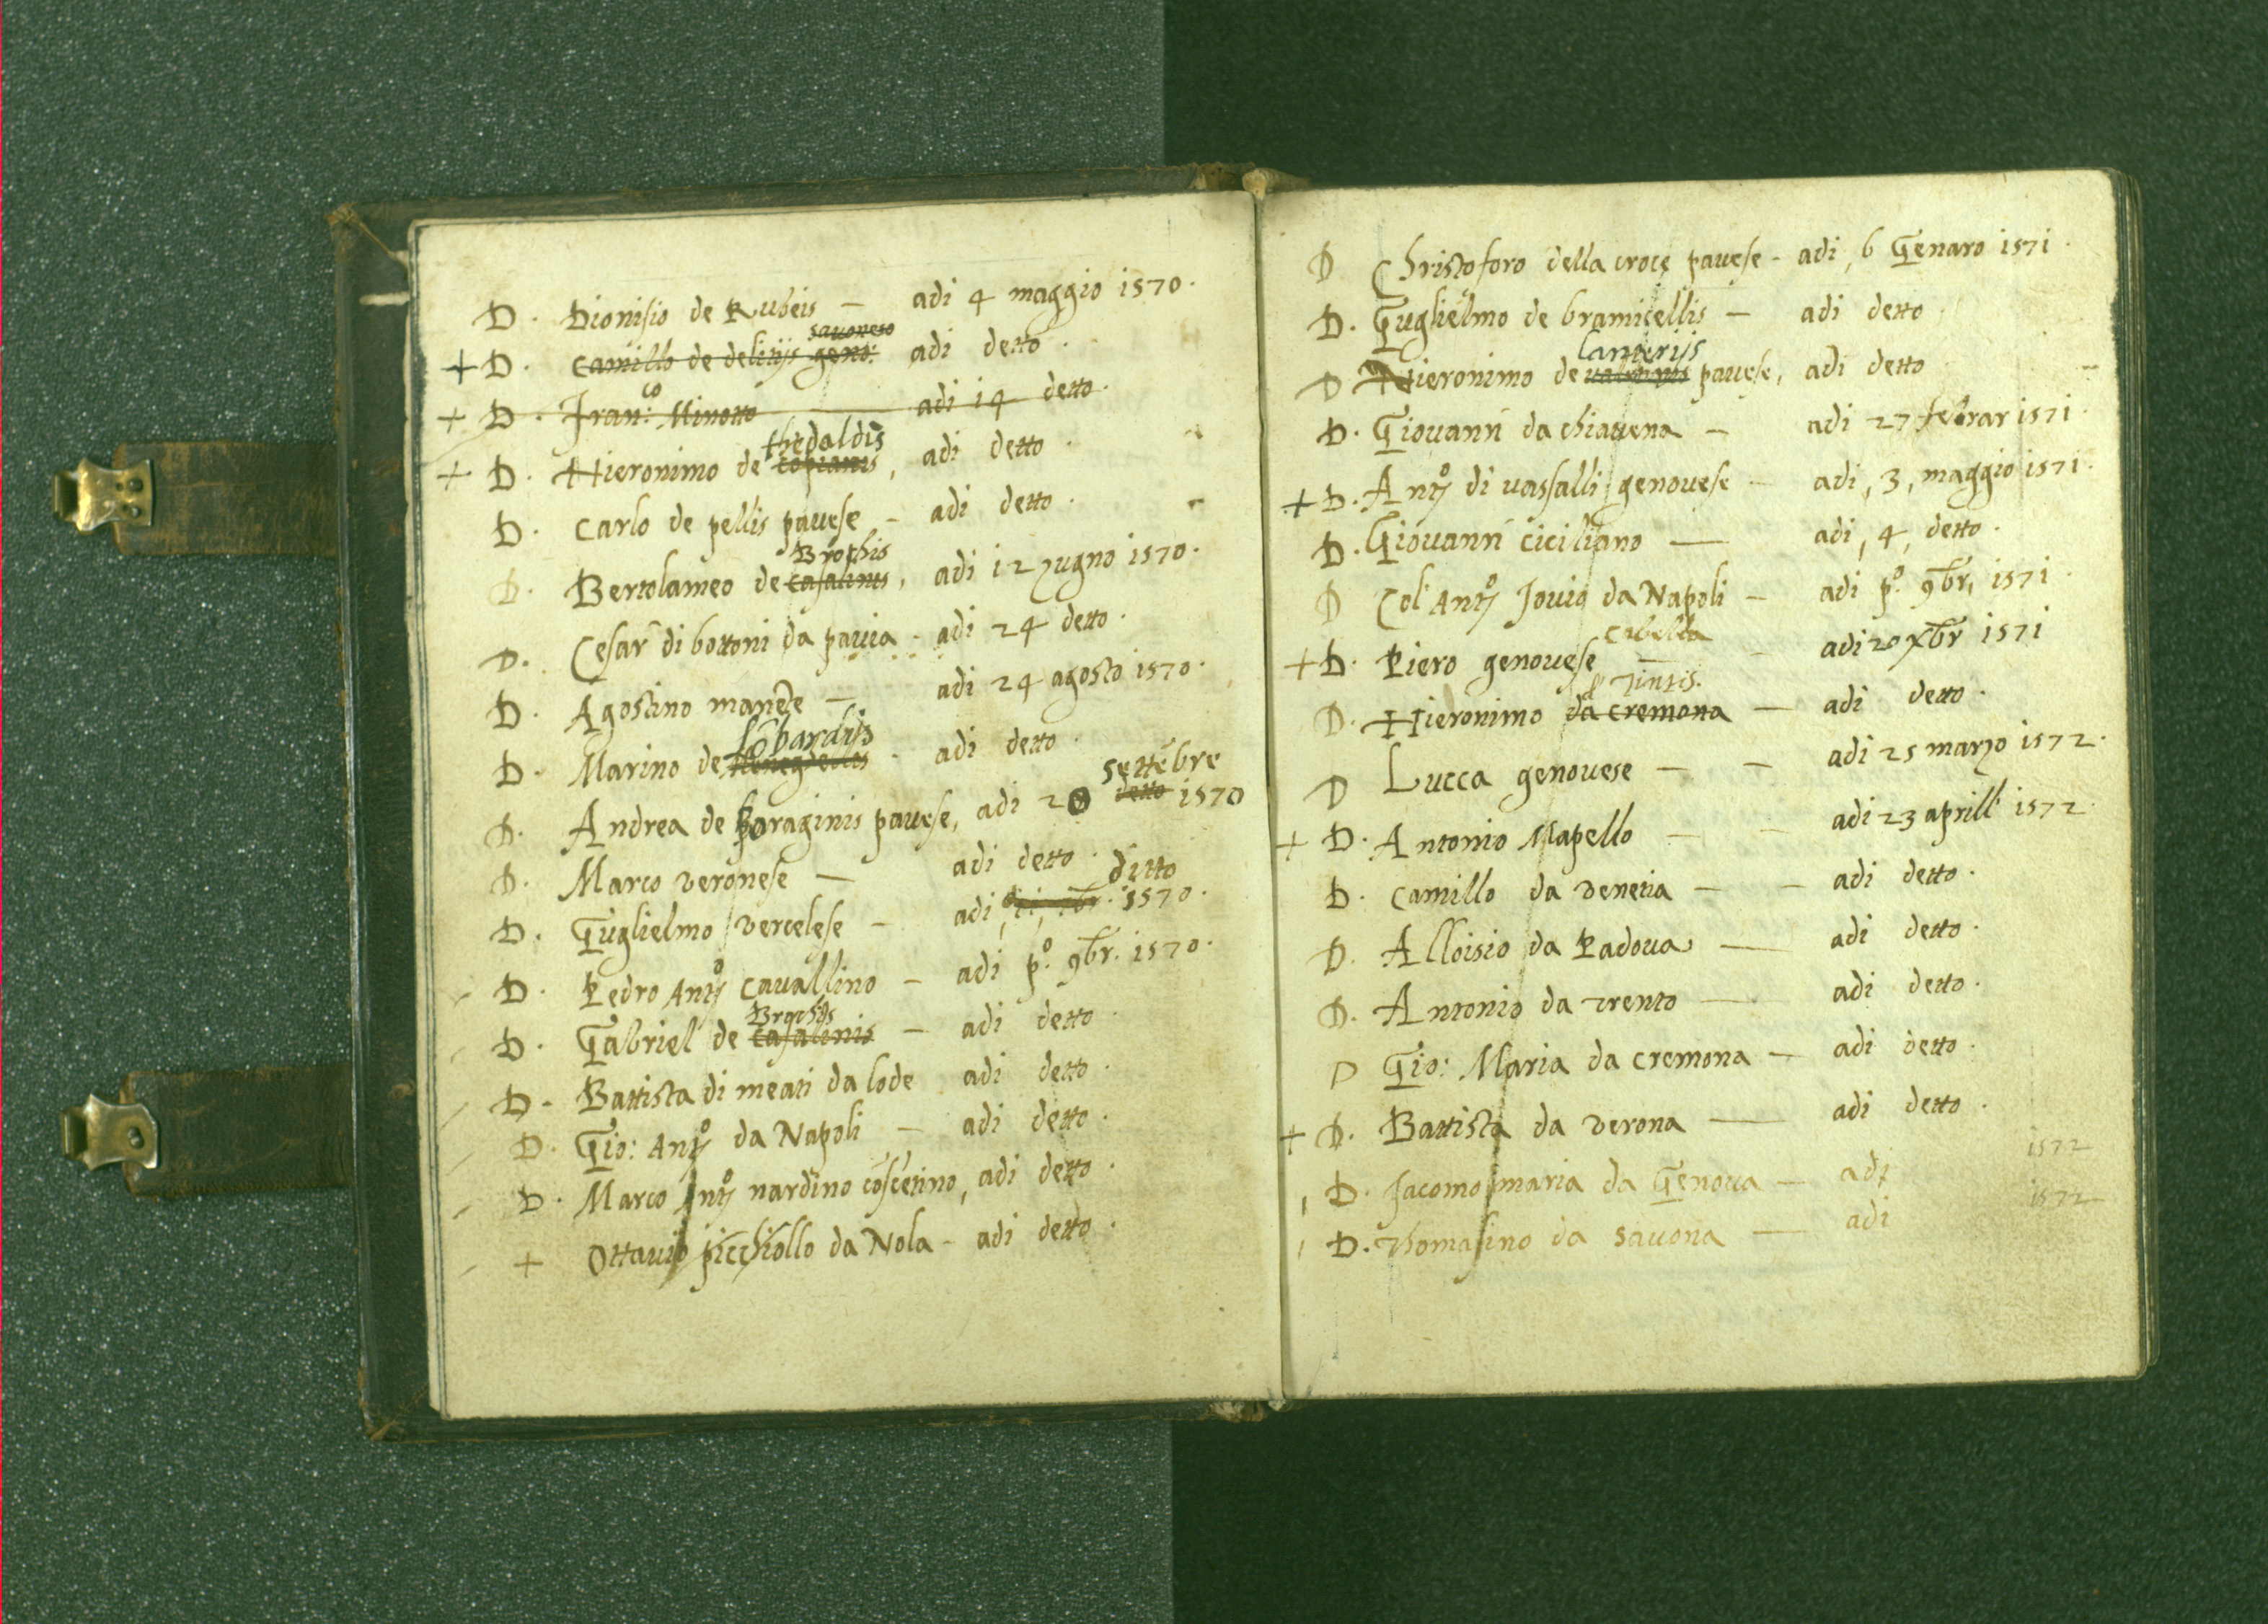 D. Dionisio de Rubeis — adi 4 maggio 1570.
savoneso
+ D. Camillo de delitijs geno: adi detto.
+ D. Fran:co Minotto adi 14 detto.
thedaldis
+ D. Hieronimo de copianis, adi detto.
D. Carlo de pellis pavese - adi detto.
Brochis
D. Bertolameo de casalinis, adi 12 zugno 1570.
D. Cesar di bottoni da pavia - adi 24 detto.
D. Agostino manere — adi 24 agosto 1570.
lōbardijs
D. Marino de adi detto.
settēbre
D. Andrea de Paraginis pavese, adi 20 detto 1570
D. Marco veronese — adi detto.
ditto
D. Guglielmo vercelese - adi 1570.
D. Pedro Antº cavallino - adi pº. 9br. 1570.
Brochijs
D. Gabriel de casalinis - adi detto.
D. Battista di meati da lode adi detto.
D. Gio: Antº da Napoli - adi detto.
D. Marco Antº nardino cōscētino, adi detto.
+ Ottavio picchiollo da Nola - adi detto.
D Christoforo della croce pavese - adi, 6 Genaro 1571.
D. Guglielmo de bramicellis — adi detto
Canterijs
D Hieronimo de pavese, adi detto
D. Giovanni da chiavena - adi 27 febrar 1571.
+ D. Antº di vassalli genovese - adi, 3, maggio 1571.
D. Giovanni ciciliano — adi, 4, detto.
D Col' Antº Jovio da Napoli - adi pº. 9br, 1571.
cabella
+ D. Piero genovese - adi 20 Xbr 1571
d' Tintis.
D. Hieronimo da cremona — adi detto.
D Lucca genovese - - adi 25 marzo 1572.
+ D. Antonio Mapello - - adi 23 aprill' 1572.
D. Camillo da venetia - - adi detto.
D. Alloisio da Padova — adi detto.
D. Antonio da trento — adi detto.
D Gio: Maria da cremona - adi detto.
+ D. Battista da verona — adi detto.
D. Jacomo maria da Genova - adi 1572
D. Thomasino da Savona — adi 1572